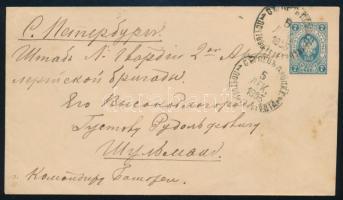 С. Петербургъ.
Штабъ Л. Гвардіи 2ой Артил-
лерійской бригады.
Его Высокоблагородію
Густаву Рудольфовичу
Шульманъ
Командиру Батареи.
7 7
5
ДЕК.